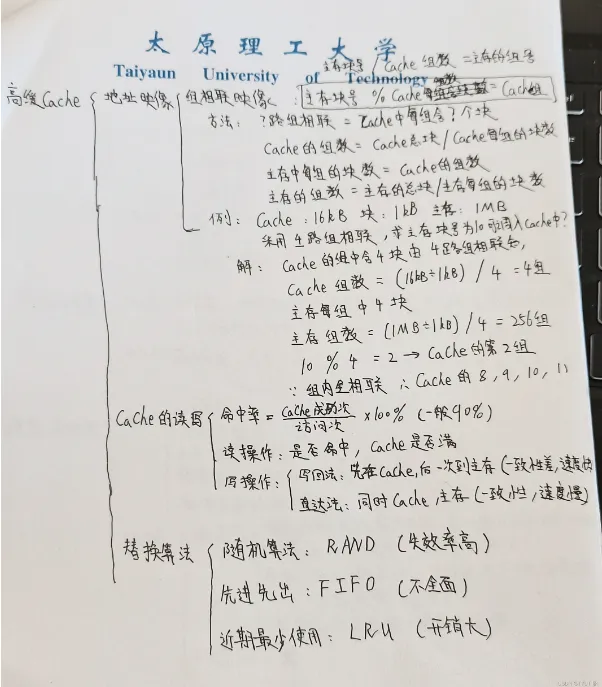 太原理工大学
Taiyaun University of Technology
主存块号 / Cache 组数 = 主存的组号
高级Cache 地址映像 组相联映像 : 主存块号 % Cache 组数 = Cache组
方法: ?路组相联 = Cache中每组含?个块
Cache的组数 = Cache总块 / Cache每组的块数
主存中每组的块数 = Cache的组数
主存的组数 = 主存的总块 / 主存每组的块数
例: Cache : 16kB 块 : 1kB 主存 : 1MB
采用4路组相联, 求主存块号为10可调入Cache中?
解: Cache的组中含4块由4路组相联知,
Cache 组数 = (16kB÷1kB) / 4 = 4组
主存每组中4块
主存 组数 = (1MB÷1kB) / 4 = 256组
10 % 4 = 2 → Cache的第2组
∵ 组内全相联 ∴ Cache的 8, 9, 10, 11
Cache的读写 命中率 = Cache成功次 / 访问次 ×100% (一般90%)
读操作: 是否命中, Cache是否满
写操作: 写回法: 先在Cache, 后一次到主存 (一致性差, 速度快
直达法: 同时Cache, 主存 (一致性, 速度慢)
替换算法 随机算法: RAND (失效率高)
先进先出: FIFO (不全面)
近期最少使用: LRU (开销大)